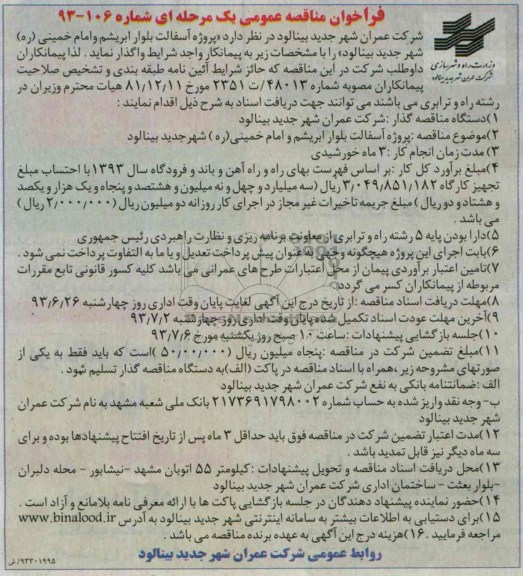 فراخوان مناقصه عمومی یک مرحله ای شماره ۱۰۶-۹۳
وزارت راه و شهرسازی
شرکت عمران شهر جدید بینالود
شرکت عمران شهر جدید بینالود در نظر دارد «پروژه آسفالت بلوار ابریشم وامام خمینی (ره)
شهر جدید بینالود» را با مشخصات زیر به پیمانکار واجد شرایط واگذار نماید . لذا پیمانکاران
داوطلب شرکت در این مناقصه که حائز شرایط آئین نامه طبقه بندی و تشخیص صلاحیت
پیمانکاران مصوبه شماره ۴۸۰۱۳/ت ۲۳۵۱ مورخ ۸۱/۱۲/۱۱ هیات محترم وزیران در
رشته راه و ترابری می باشند می توانند جهت دریافت اسناد به شرح ذیل اقدام نمایند :
۱)دستگاه مناقصه گذار :شرکت عمران شهر جدید بینالود
۲)موضوع مناقصه :پروژه آسفالت بلوار ابریشم و امام خمینی(ره) شهر جدید بینالود
۳)مدت زمان انجام کار :۳ ماه خورشیدی
۴)مبلغ برآورد کل کار :بر اساس فهرست بهای راه و راه آهن و باند و فرودگاه سال ۱۳۹۳با احتساب مبلغ
تجهیز کارگاه ۳/۰۴۹/۸۵۱/۱۸۲ ریال (سه میلیارد و چهل و نه میلیون و هشتصد و پنجاه و یک هزار و یکصد
و هشتاد و دو ریال ) مبلغ جریمه تاخیرات غیر مجاز در اجرای کار روزانه دو میلیون ریال (۲/۰۰۰/۰۰۰ ریال )
می باشد .
۵)دارا بودن پایه ۵ رشته راه و ترابری از معاونت برنامه ریزی و نظارت راهبردی رئیس جمهوری
۶)بابت اجرای این پروژه هیچگونه وجهی به عنوان پیش پرداخت تعدیل و یا ما به التفاوت پرداخت نمی شود .
۷)تامین اعتبار برآوردی پیمان از محل اعتبارات طرح های عمرانی می باشد کلیه کسور قانونی تابع مقررات
مربوطه از پیمانکاران کسر می گردد
۸)مهلت دریافت اسناد مناقصه :از تاریخ درج این آگهی لغایت پایان وقت اداری روز چهارشنبه ۹۳/۶/۲۶
۹)آخرین مهلت عودت اسناد تکمیل شده پایان وقت اداری روز چهارشنبه ۹۳/۷/۲
۱۰)جلسه بازگشایی پیشنهادات :ساعت ۱۰ صبح روز یکشنبه مورخ ۹۳/۷/۶
۱۱)مبلغ تضمین شرکت در مناقصه :پنجاه میلیون ریال (۵۰/۰۰/۰۰۰ )است که باید فقط به یکی از
صورتهای مشروحه زیر ،همراه با اسناد مناقصه در پاکت (الف)به دستگاه مناقصه گذار تسلیم شود .
الف :ضمانتنامه بانکی به نفع شرکت عمران شهر جدید بینالود
ب- وجه نقد واریز شده به حساب شماره ۲۱۷۳۶۹۱۷۹۸۰۰۲ بانک ملی شعبه مشهد به نام شرکت عمران
شهر جدید بینالود
۱۲)مدت اعتبار تضمین شرکت در مناقصه فوق باید حداقل ۳ ماه پس از تاریخ افتتاح پیشنهادها بوده و برای
سه ماه دیگر نیز قابل تمدید باشد .
۱۳)محل دریافت اسناد مناقصه و تحویل پیشنهادات :کیلومتر ۵۵ اتوبان مشهد -نیشابور - محله دلبران
-بلوار بعثت - ساختمان اداری شرکت عمران شهر جدید بینالود
۱۴)حضور نماینده پیشنهاد دهندگان در جلسه بازگشایی پاکت ها با ارائه معرفی نامه بلامانع و آزاد است .
۱۵)برای دستیابی به اطلاعات بیشتر به سامانه اینترنتی شهر جدید بینالود به آدرس www.binalood.ir
مراجعه فرمایید .۱۶)هزینه درج این آگهی به عهده برنده مناقصه می باشد .
روابط عمومی شرکت عمران شهر جدید بینالود
۹۳۳۰۱۹۹۵/ش